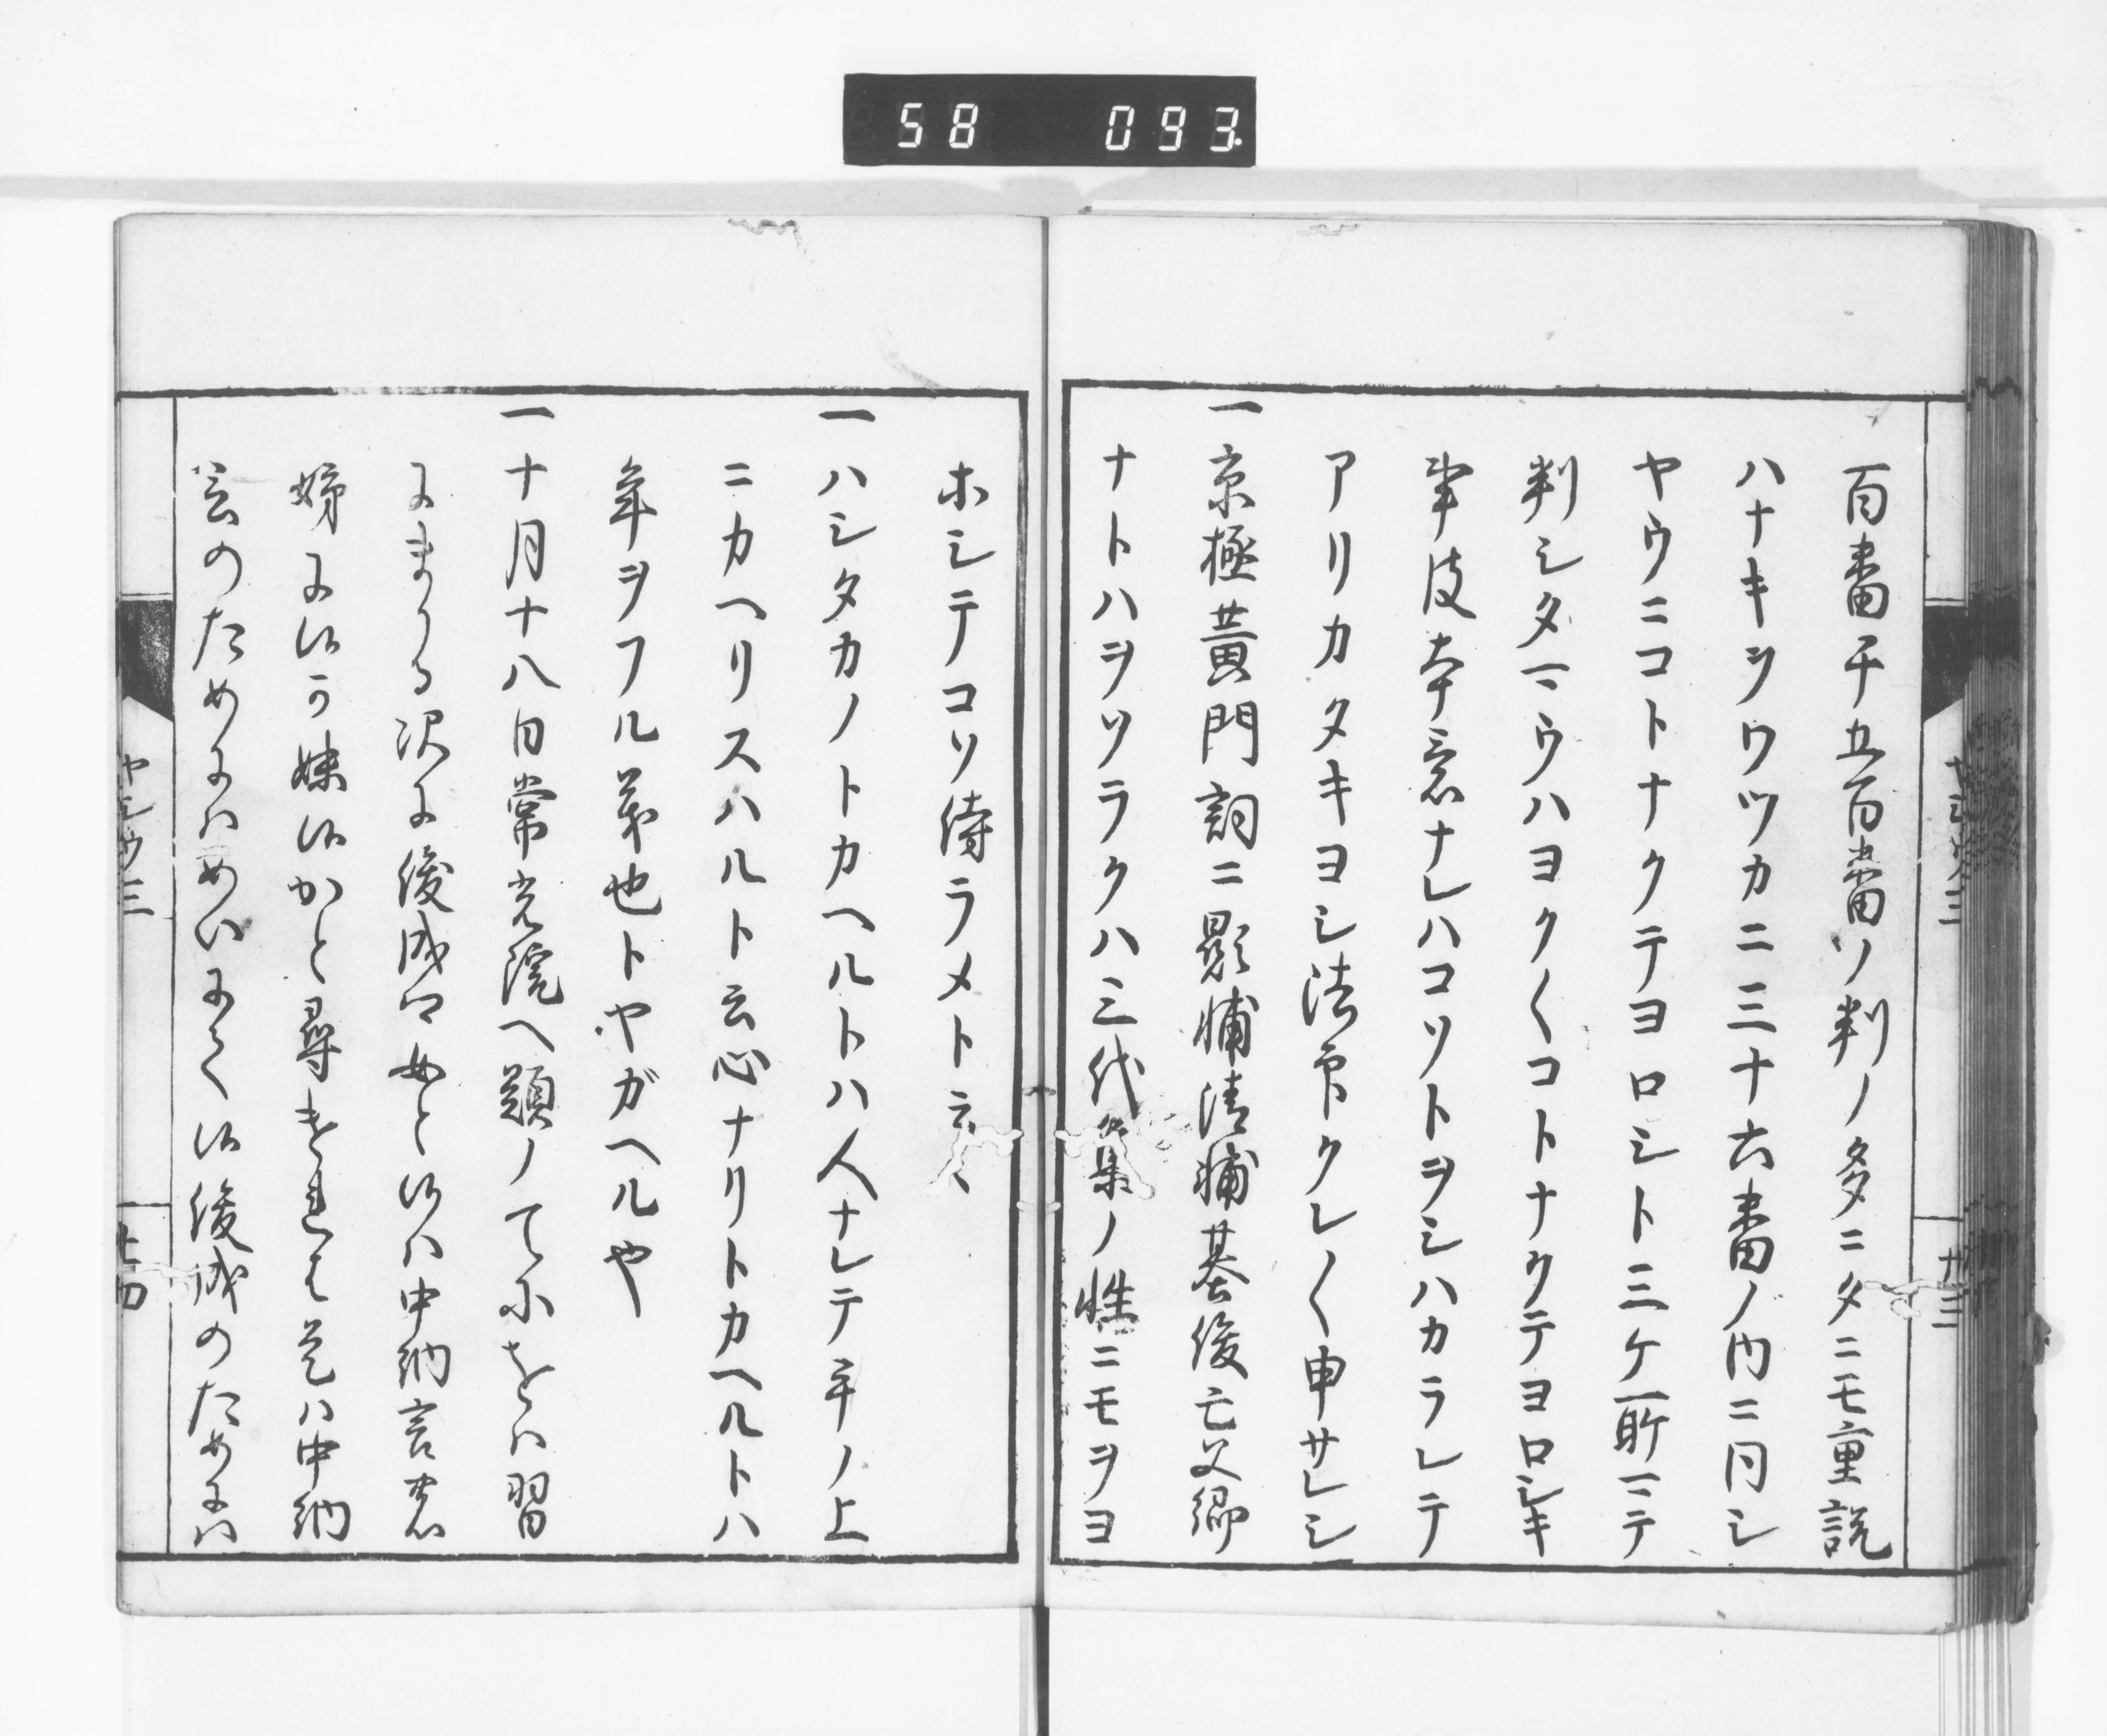 58 093
百番千五百番ソノ判ノ多ニタニモ重説
ハナキヲワツカニ三十六番ノ内ニ同シ
ヤウニコトナクテヨロシト三ケ所マテ
判シタマウハヨク〱コトナクテヨロシキ
事歌本意ナレハコソトヲシハカラレテ
アリカタキヨシ法印クレ〱申サレシ
一京極黄門詞ニ顕輔清輔基俊亡父卿
ナトハヲソラクハ三代集ノ性ニモヲヨ
ホシテコソ侍ラメト云々
一ハシタカノトカヘルトハ人ナレテ手ノ上
ニカヘリスハルト云心ナリトカヘルトハ
年ヲフル義也トヤガヘルや
一十月十八日常光院ヘ題ノてにをハ習
にまかる次に俊成卿女と候ハ中納言君
姉に候う妹候かと尋けれは是ハ中納
言のためにハめいにて候俊成のためにハ
ヤシウ三
廿三
廿四